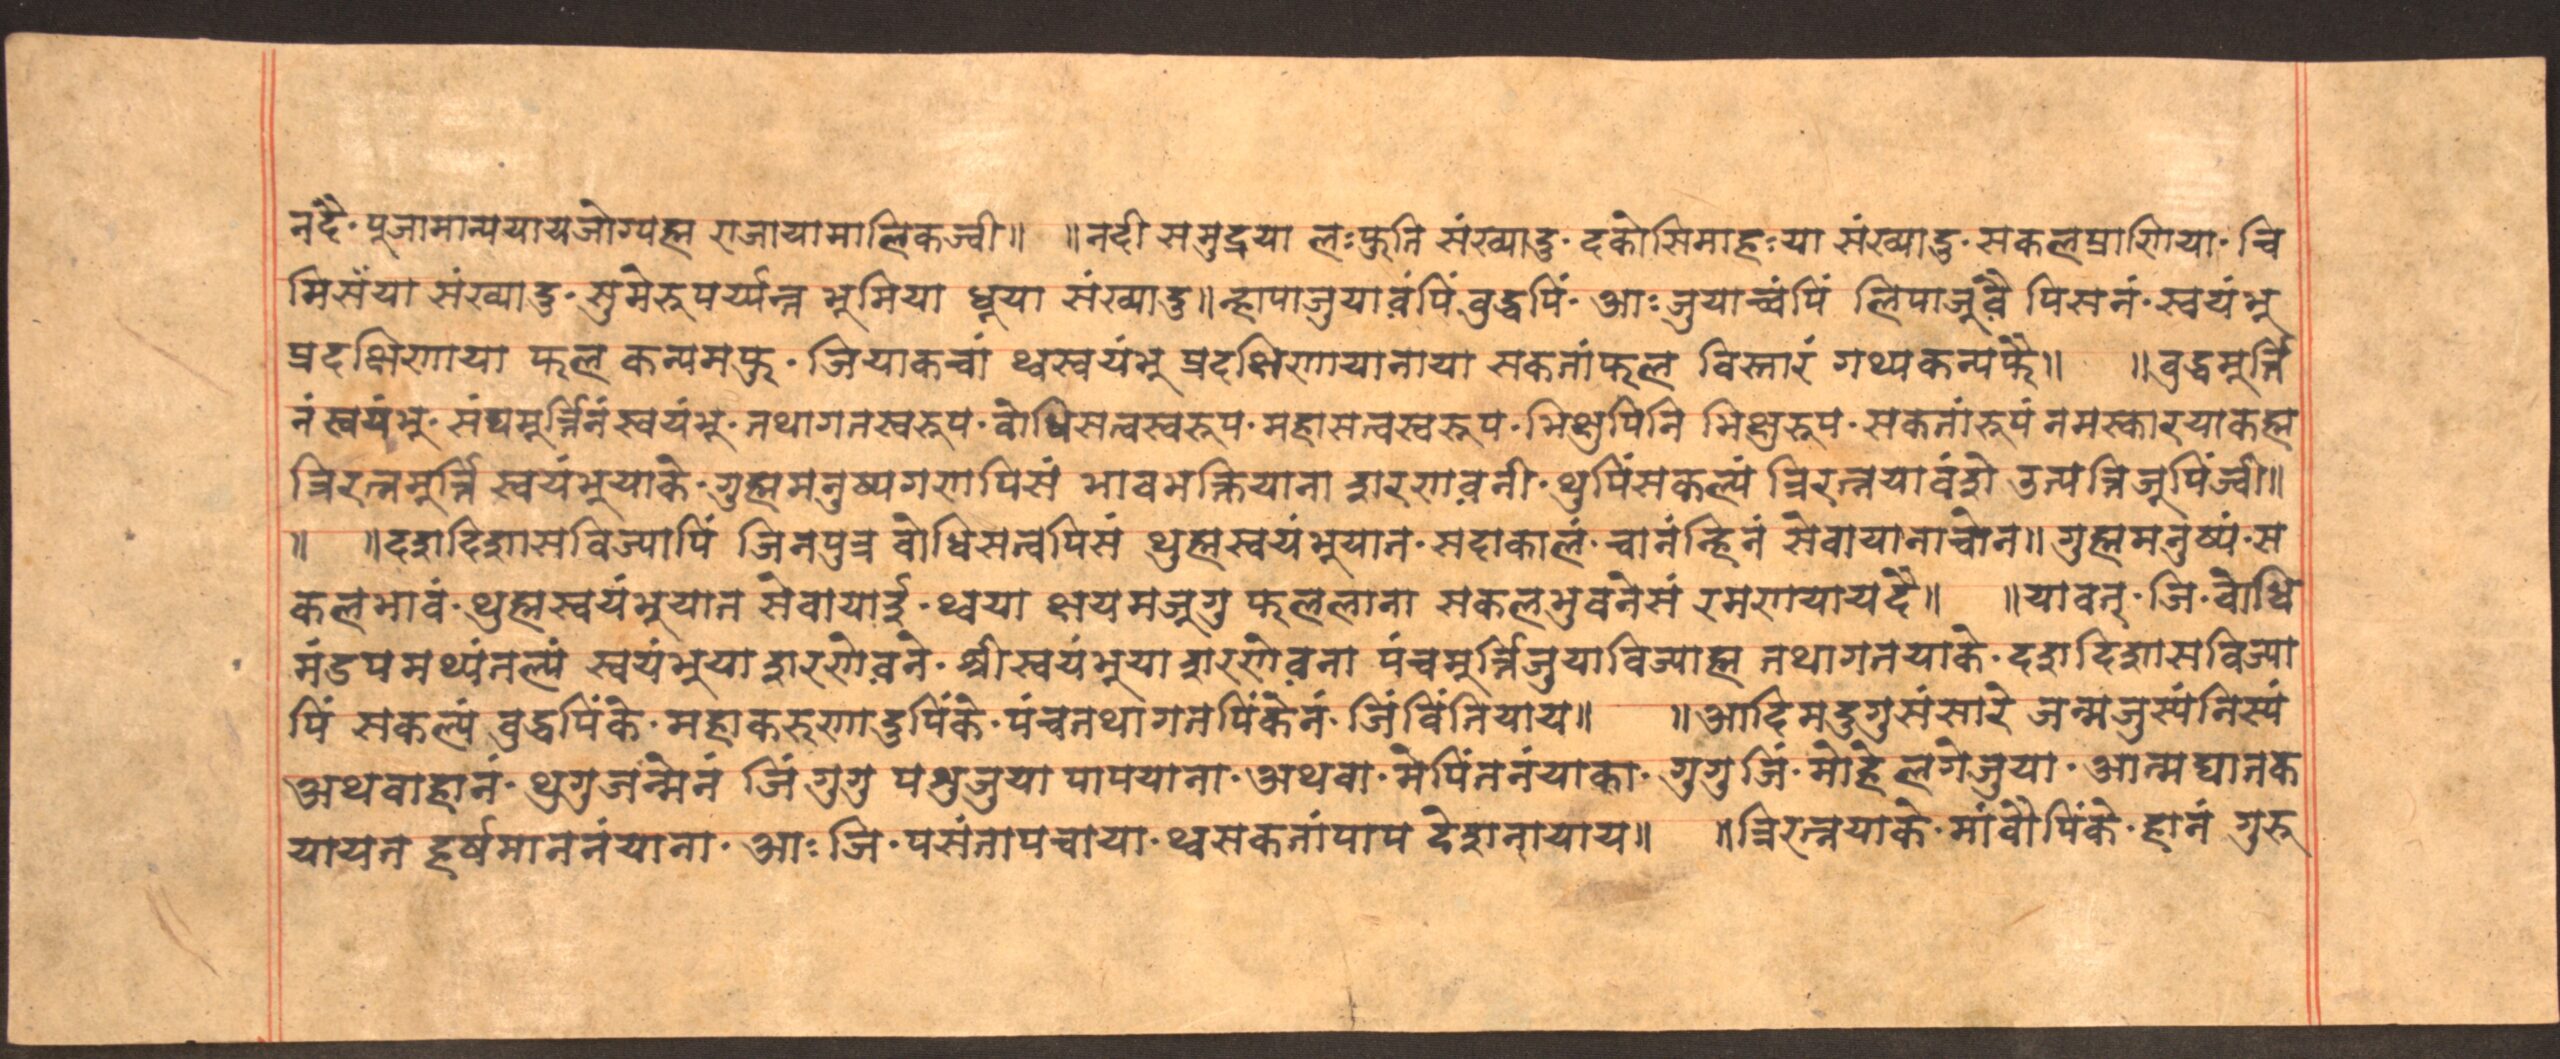 नंदै॰ पुजामान्ययायजोग्यह्म राजायामालिकज्वी॥ ॥नदी समुद्रया लःफुति संख्यादु॰ दकोसिमाहःया संख्यादु॰ सकलप्राणिया॰ चि
मिसँया संख्यादु॰ सुमेरुपर्य्यन्त भूमिया ध्बूया संख्यादु॥न्हापाजुयावंपिं बुद्धपिं॰ आःजुयाच्वंपिं लिपाजूवै पिसनं॰ स्वयंभु
प्रदक्षिणाया फल कन्यमफु॰ जियाकचां थ्वस्वयंभु प्रदक्षिणायानाया सकतांफल विस्तारं गथ्यकन्यफै॥ ॥बुद्धमूर्त्ति
नंस्वयंभु॰ संघमूर्त्तिनंस्वयंभु॰ तथागतस्वरुप॰ बोधिसत्वस्वरुप॰ महासत्वस्वरुप॰ भिक्षुपिनि भिक्षुरुप॰ सकतांरुपं नमस्कारयाकह्म
त्रिरत्नमूर्त्ति स्वयंभुयाके॰ गुह्ममनुष्यगणपिसं भावभक्तियाना शरणवनी॰ थुपिंसकल्यं त्रिरत्नयावंशे उत्पत्तिजूपिंज्वी॥
॥ ॥दशदिशासविज्यापिं जिनपुत्र बोधिसत्वपिसं थुह्मस्वयंभुयात॰ सदाकालं॰ चानंन्हिनं सेवायानाचोन॥ गुह्ममनुष्यं॰ स
कलभावं॰ थुह्मस्वयंभुयात सेवायाई॰ थ्वया क्षयमजूगु फललाना सकलभुवनेसं रमणयायदै॥ ॥यावत्॰ जि॰ बोधि
मंडपमथ्यंतल्यं स्वयंभुया शरणेवने॰ श्रीस्वयंभुया शरणेवना पंचमूर्त्तिजुयाविज्याह्म तथागतयाके॰ दशदिशासविज्या
पिं सकल्यं बुद्धपिंके॰ महाकरुणादुपिंके॰ पंचतथागतपिंकेनं॰ जिंविंतियाय॥ ॥आदिमदुगुसंसारे जन्मजुस्यंनिस्यं
अथवाहानं॰ थुगुजन्मेनं जिंगुगु पशुजुया पापयाना॰ अथवा॰ मेपिंतनंयाका॰ गुगुजिं॰ मोहेलगेजुया॰ आत्मघातक
यायत हर्षमाननंयाना॰ आः जि॰ पसंतापचाया॰ थ्वसकतांपाप देशनायाय॥ ॥त्रिरत्नयाके॰ मांबौपिंके॰ हानं गुरु